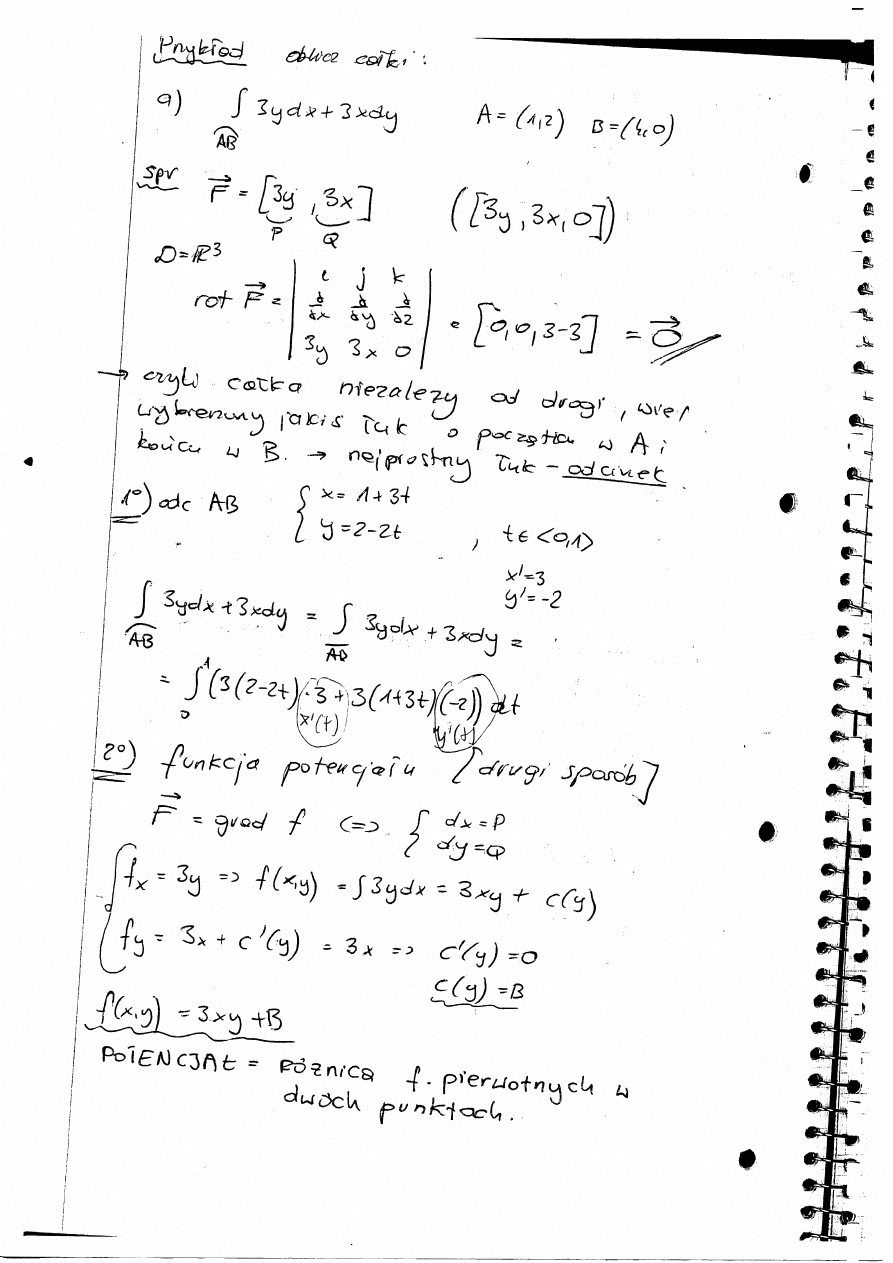 Przykład oblicz całki:
a) ∫ 3ydx + 3xdy A = (1,2) B = (4,0)
AB
spr F = [3y , 3x] ([3y, 3x, 0])
P Q
D = ℝ³
i j k
rot F = | d/dx d/dy d/dz | = [0, 0, 3-3] = 0
3y 3x 0
→ czyli całka niezależy od drogi, więc
wybierzmy jakiś łuk o początku w A i
końcu w B. → najprostszy łuk – odcinek
1°) odc AB { x = 1+3t
y = 2-2t , t∈<0,1>
x' = 3
y' = -2
∫ 3ydx + 3xdy = ∫ 3ydx + 3xdy =
AB AB
= ∫ (3(2-2t)·3 + 3(1+3t)(-2)) dt
0 1
x'(t) y'(t)
2°) funkcja potencjału [drugi sposób]
F = grad f <=> { dx = P
dy = Q
{ fx = 3y => f(x,y) = ∫3ydx = 3xy + c(y)
fy = 3x + c'(y) = 3x => c'(y) = 0
c(y) = B
f(x,y) = 3xy + B
POTENCJAŁ = różnica f. pierwotnych w
dwóch punktach.